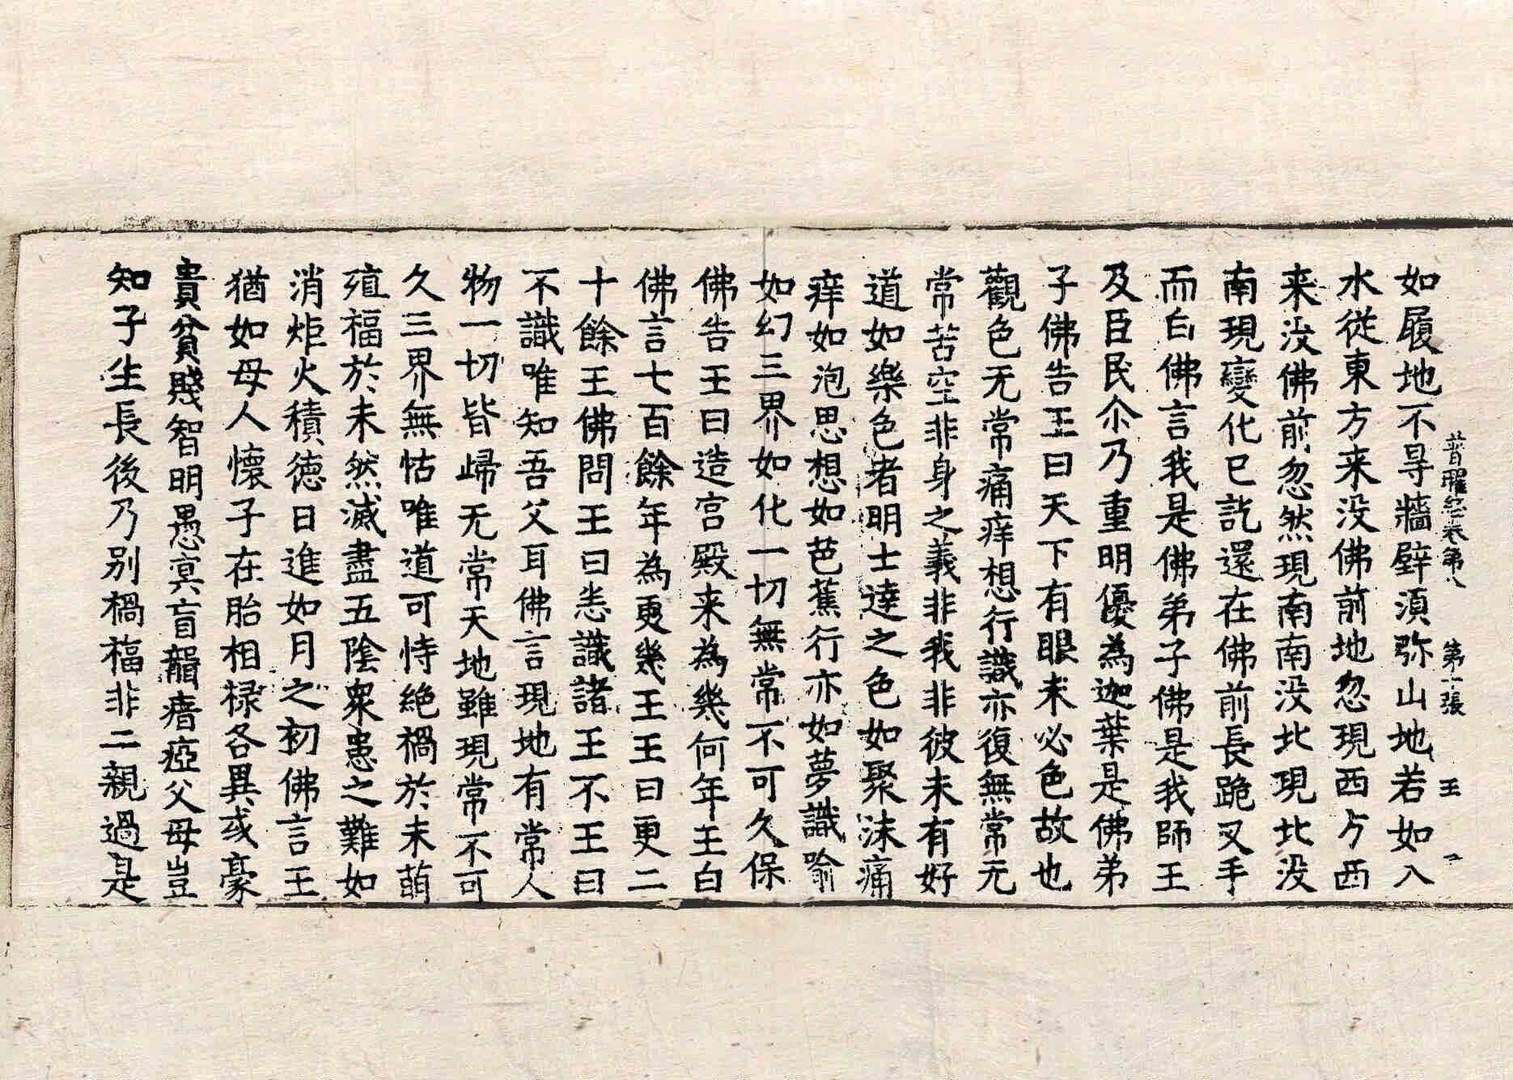 普曜経卷第八　第十張　王
如履地不㝵牆壁湏弥山地若如入
水從東方来没佛前地忽現西方西
来没佛前忽然現南南没北現北没
南現變化已訖還在佛前長跪叉手
而白佛言我是佛弟子佛是我師王
及臣民尒乃重明優為迦葉是佛弟
子佛告王曰天下有眼未必色故也
觀色无常痛痒想行識亦復無常无
常苦空非身之義非我非彼未有好
道如樂色者明士達之色如聚沫痛
痒如泡思想如芭蕉行亦如夢識喻
如幻三界如化一切無常不可久保
佛告王曰造宮殿来為幾何年王白
佛言七百餘年為更幾王王曰更二
十餘王佛問王曰悉識諸王不王曰
不識唯知吾父耳佛言現地有常人
物一切皆歸无常天地雖現常不可
久三界無怙唯道可恃絶禍於未萌
殖福於未然滅盡五陰衆患之難如
消炬火積徳日進如月之初佛言王
猶如母人懷子在胎相祿各異或豪
貴貧賤智明愚冥盲聾瘖瘂父母豈
知子生長後乃别禍福非二親過是